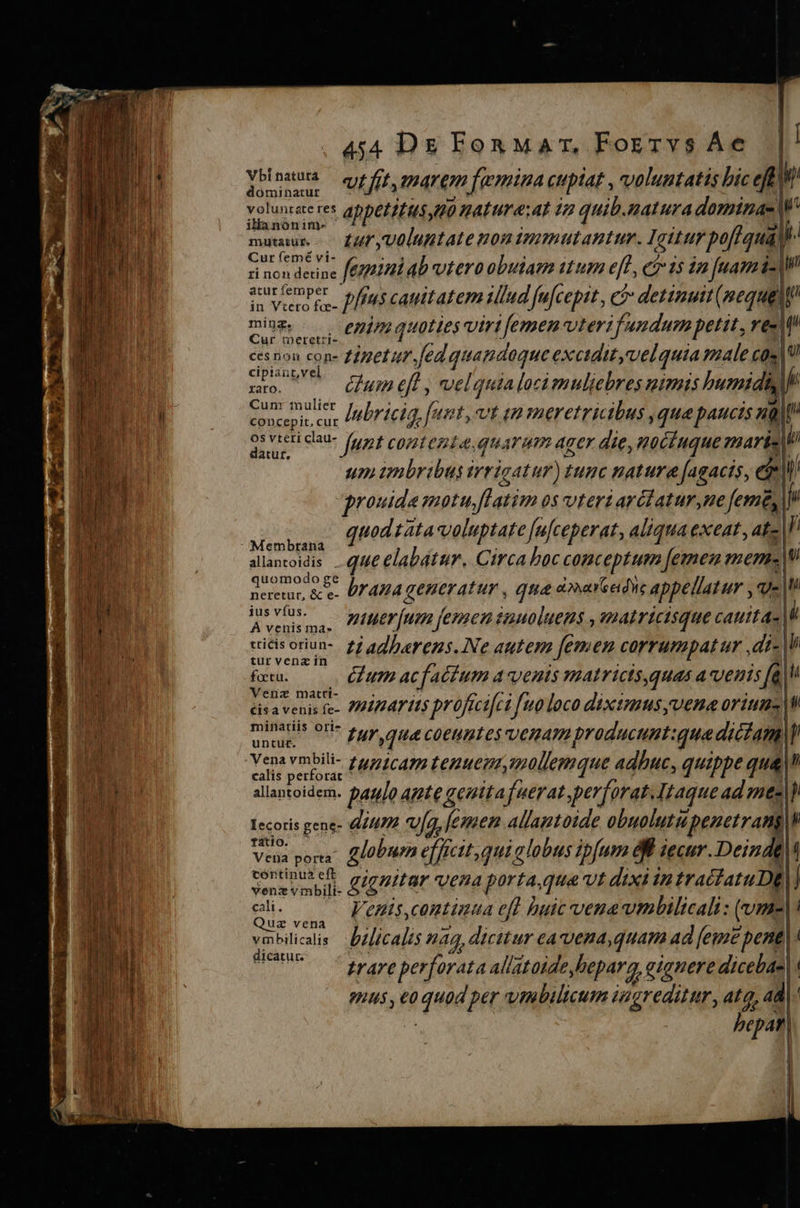 454 DE FORMAT. FOETVS AC
Vbi natura
dominatur
voluntate res
illa non im-
mutatur.
Cur semē vi-
ri non detine
atur semper
in Vtero fœ-
minæ.
Cur meretri-
ces non con-
cipiant, vel
raro.
Cum mulier
concepit, cur
os vteri clau-
datur.
Membrana
allantoidis
quomodo ge
neretur, & e-
ius vsus.
A venis ma-
tricis oriun-
tur venæ in
fœtu.
Venæ matri-
cis a venis se-
minariis ori-
untur.
Vena vmbili-
calis perforat
allantoidem.
Iecoris gene-
ratio.
Vena porta
continua est
venæ vmbili-
cali.
Quæ vena
vmbilicalis
dicatur.
vt sit, marem fœmina cupiat, voluntatis hic est
appetitus, nō naturæ: at in quib. natura domina-
tur, voluntate non immutantur. Igitur postquā
semini ab vtero obuiam itum est, & is in suam i-
psius cauitatem illud suscepit, & detinuit (neque
enim quoties viri semen vteri fundum petit, re-
tinetur, sed quandoque excidit, vel quia male co-
ctum est, vel quia loci muliebres nimis humidi,
lubriciq, sunt, vt in meretricibus, quæ paucis nō
sunt contentæ, quarum ager die, noctuque maris-
um imbribus irrigatur) tunc naturæ sagacis, &
prouidæ motu, statim os vteri arctatur, ne semē,
quod tāta voluptate susceperat, aliqua exeat, at-
que elabatur. Circa hoc conceptum semen mem-
brana generatur, quæ ἀλλαντοειδὴς appellatur, v-
niuersum semen inuoluens, matricisque cauita-
ti adhærens. Ne autem semen corrumpatur, di-
ctum ac factum a venis matricis, quas a venis se
minariis proficisci suo loco diximus, venæ oriun-
tur, quæ coeuntes venam producunt: quæ dictam
tunicam tenuem, mollemque adhuc, quippe quæ
paulo ante genita fuerat, perforat. Itaque ad me-
dium vsq, semen allantoide obuolutū penetrans
globum efficit, qui globus ipsum est iecur. Deinde
gignitur vena porta, quæ vt dixi in tractatu De
Venis, continua est huic venæ vmbilicali: (vm-
bilicalis nāq, dicitur ea vena, quam ad semē pene
trare perforata allātoide, heparq, gignere diceba-
mus, eo quod per vmbilicum ingreditur, atq, ad
hepar